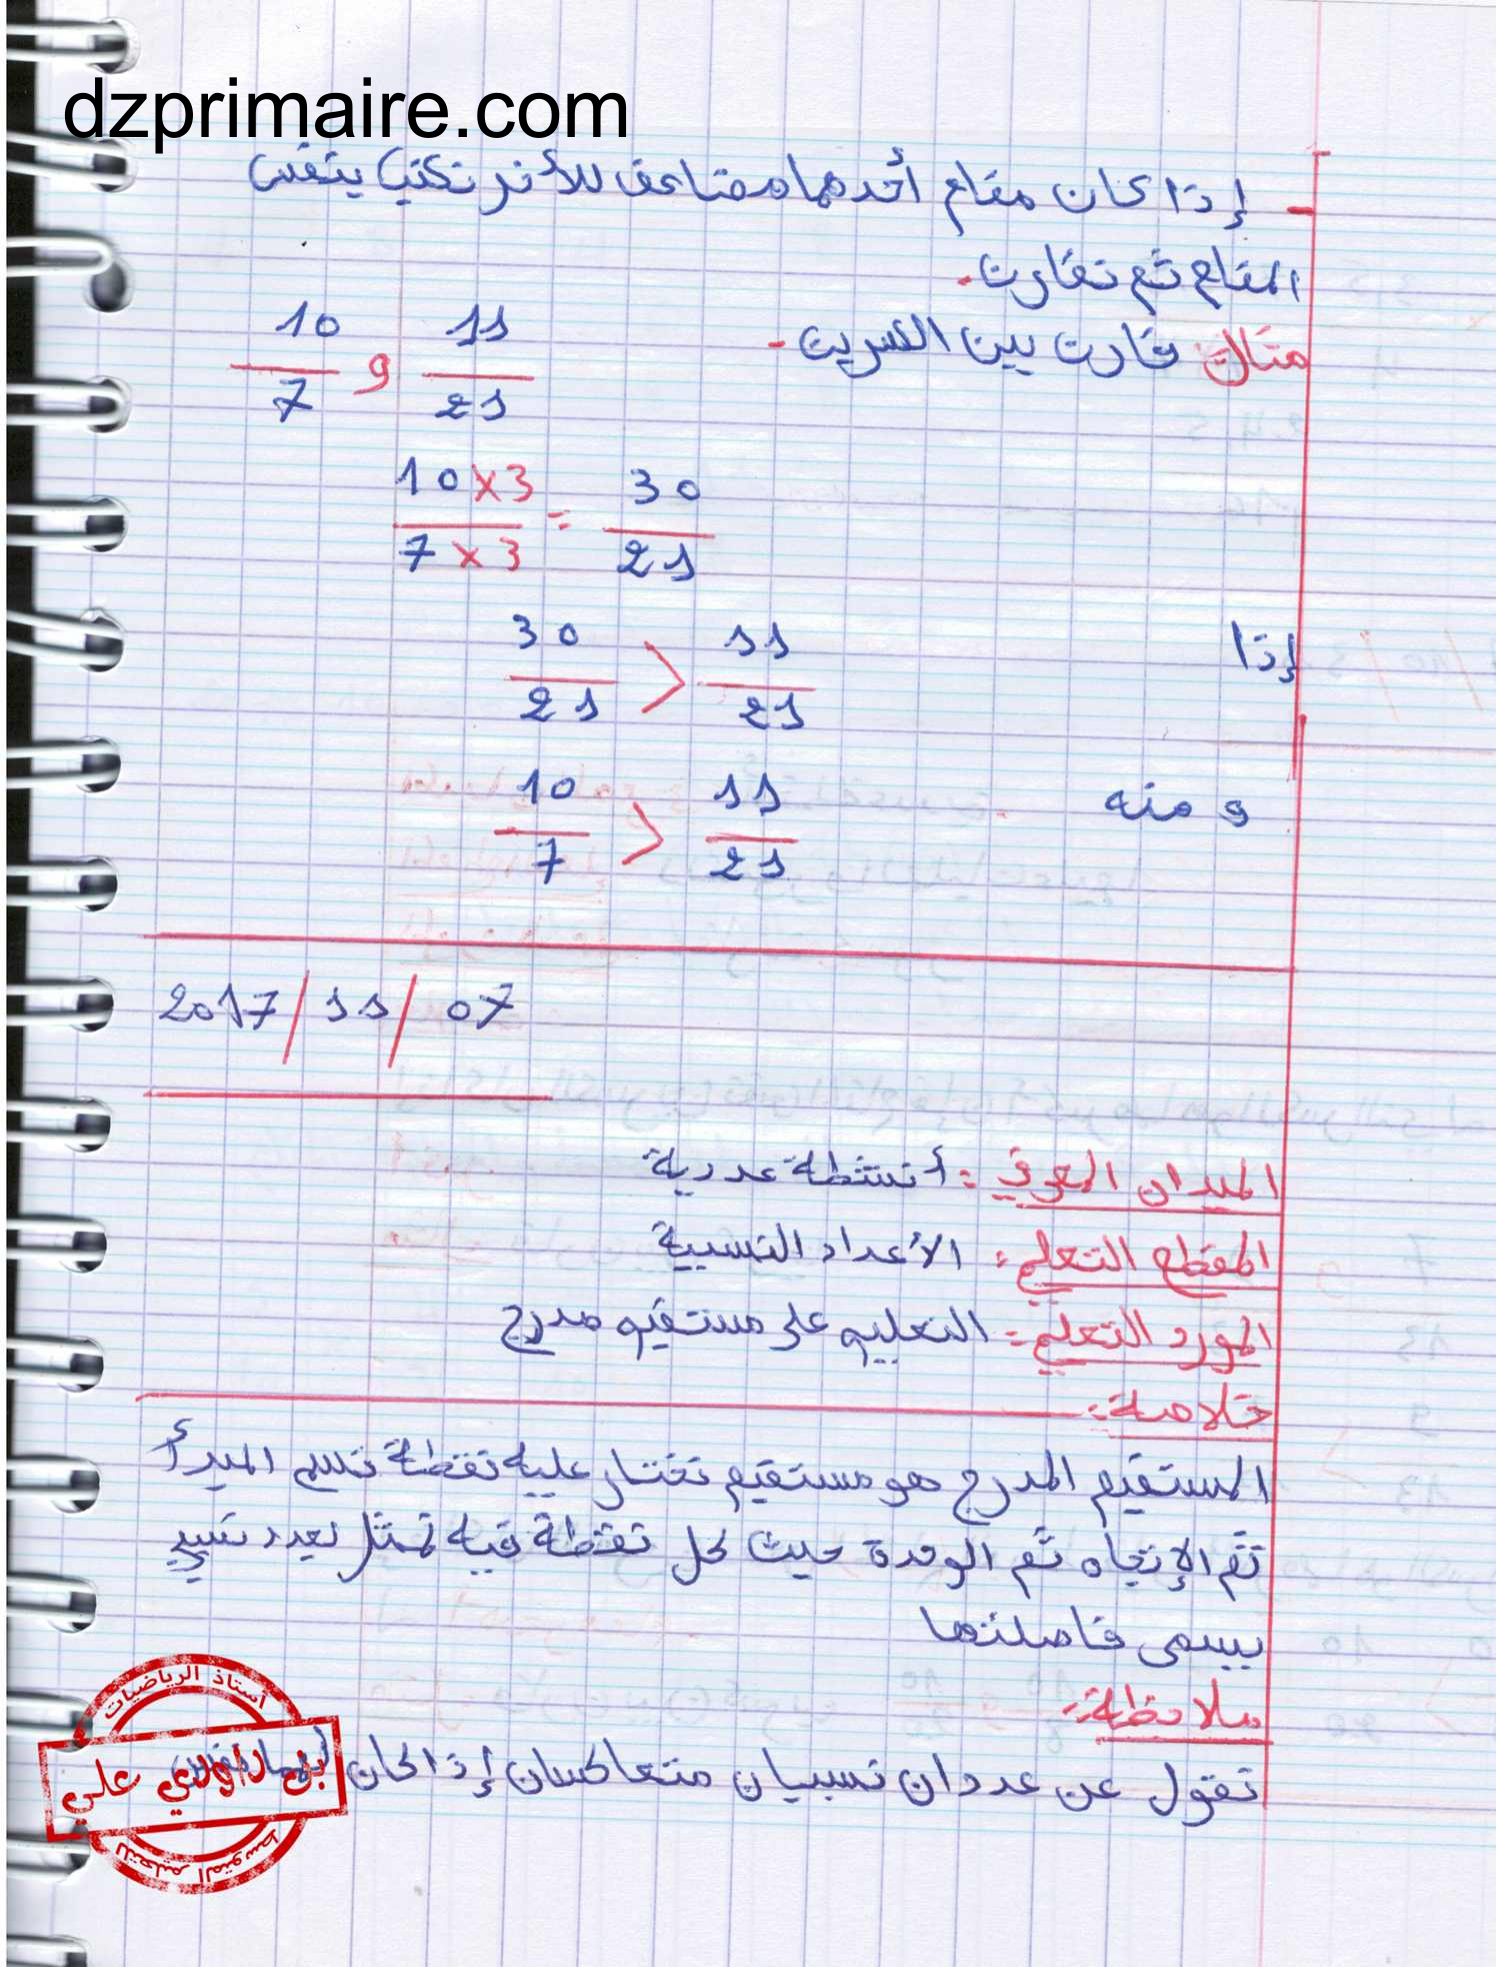 dzprimaire.com
- إذا كان مقام أحدهما مضاعف للأخر نكتب بنفس
المقام ثم نقارن.
مثال: قارن بين الكسرين -
10/7 و 11/21
10×3 / 7×3 = 30/21
إذا 30/21 > 11/21
و منه 10/7 > 11/21
2017/11/07
الميدان المعرفي: أنشطة عددية
المقطع التعلمي: الأعداد النسبية
المورد التعلمي: التعليم على مستقيم مدرج
خلاصة:
المستقيم المدرج هو مستقيم نختار عليه نقطة نسم المبدأ
ثم الإتجاه ثم الوحدة حيث كل نقطة فيه تمثل بعدد نسبي
يسمى فاصلتها
ملاحظة:
نقول عن عددان نسبيان متعاكسان إذا كان
أستاذ الرياضيات
بن داودي علي
للتعليم المتوسط